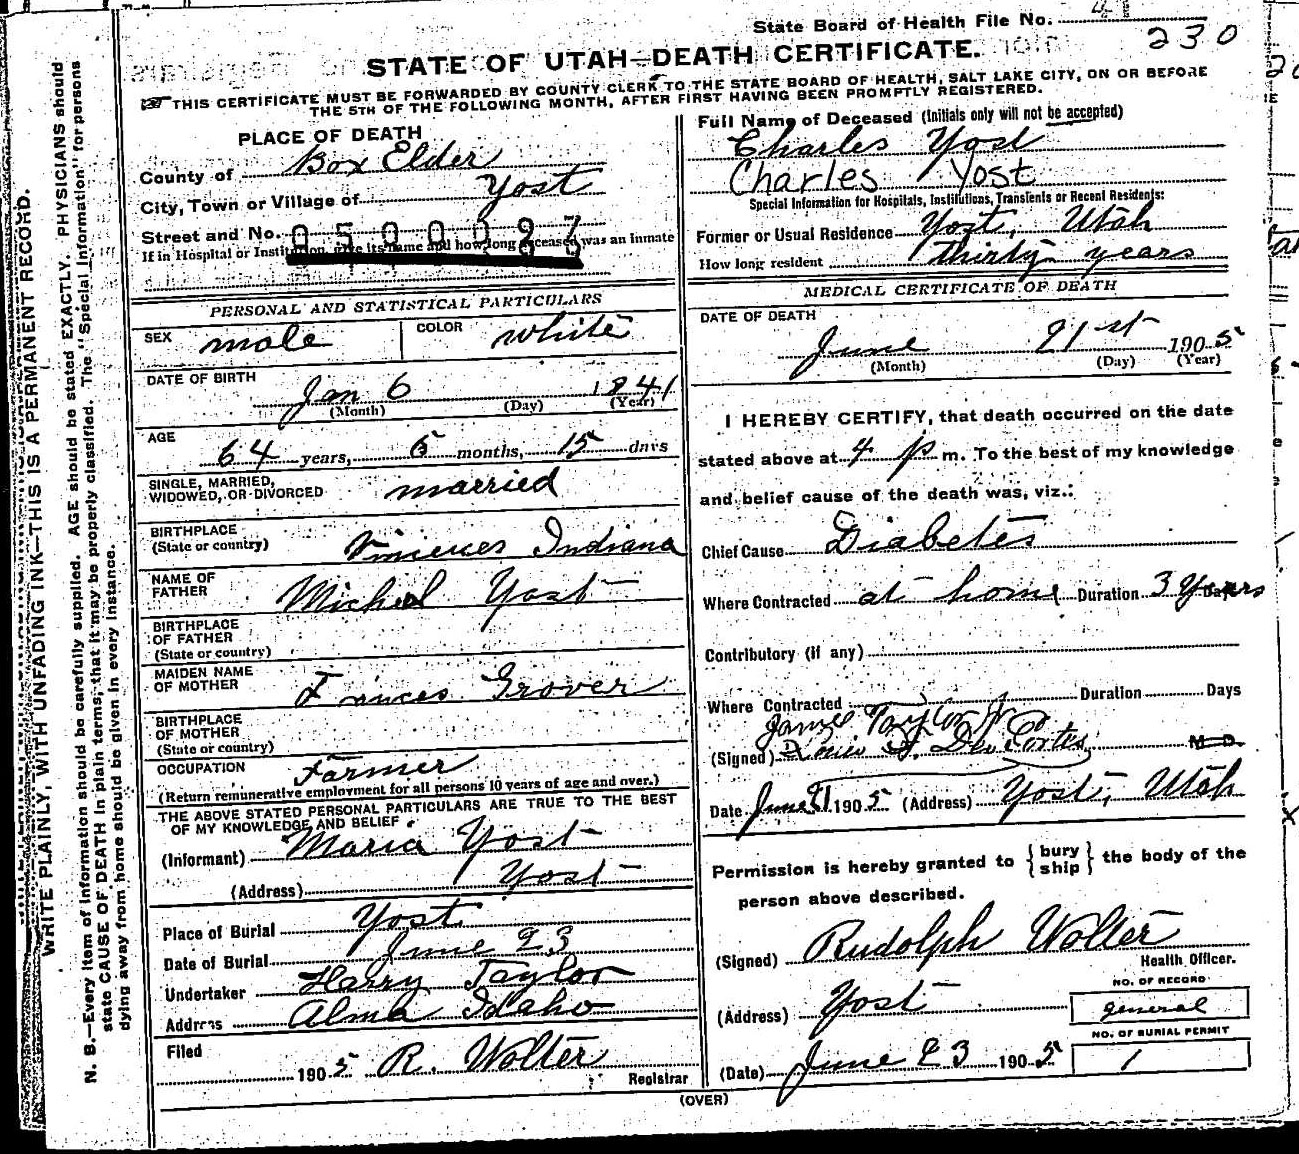 State Board of Health File No. 41
230
STATE OF UTAH—DEATH CERTIFICATE.
THIS CERTIFICATE MUST BE FORWARDED BY COUNTY CLERK TO THE STATE BOARD OF HEALTH, SALT LAKE CITY, ON OR BEFORE
THE 5TH OF THE FOLLOWING MONTH, AFTER FIRST HAVING BEEN PROMPTLY REGISTERED.
WRITE PLAINLY, WITH UNFADING INK—THIS IS A PERMANENT RECORD.
N. B.—Every item of information should be carefully supplied. AGE should be stated EXACTLY. PHYSICIANS should
state CAUSE OF DEATH in plain terms, that it may be properly classified. The "Special Information" for persons
dying away from home should be given in every instance.
PLACE OF DEATH
County of Box Elder
City, Town or Village of Yost
Street and No.
0500083
If in Hospital or Institution, give its name and how long deceased was an inmate
PERSONAL AND STATISTICAL PARTICULARS
SEX male COLOR white
DATE OF BIRTH Jan 6 1841
(Month) (Day) (Year)
AGE
64 years, 5 months, 15 days
SINGLE, MARRIED,
WIDOWED, OR DIVORCED married
BIRTHPLACE
(State or country) Vincences Indiana
NAME OF
FATHER Micheal Yost
BIRTHPLACE
OF FATHER
(State or country)
MAIDEN NAME
OF MOTHER Frances Grover
BIRTHPLACE
OF MOTHER
(State or country)
OCCUPATION Farmer
(Return remunerative employment for all persons 10 years of age and over.)
THE ABOVE STATED PERSONAL PARTICULARS ARE TRUE TO THE BEST
OF MY KNOWLEDGE AND BELIEF
(Informant) Maria Yost
(Address) Yost
Place of Burial Yost
Date of Burial June 23
Undertaker Harry Taylor
Address Alma Idaho
Filed
1905 R. Wolter
Registrar
Full Name of Deceased (Initials only will not be accepted)
Charles Yost
Charles Yost
Special Information for Hospitals, Institutions, Transients or Recent Residents:
Former or Usual Residence Yost, Utah
How long resident thirty years
MEDICAL CERTIFICATE OF DEATH
DATE OF DEATH
June 21st 1905
(Month) (Day) (Year)
I HEREBY CERTIFY, that death occurred on the date
stated above at 4 p m. To the best of my knowledge
and belief cause of the death was, viz.:
Chief Cause Diabetes
Where Contracted at home Duration 3 Years Days
Contributory (if any)
Where Contracted Duration Days
James Taylor Jr Co
(Signed) M. D.
Date June 21 1905 (Address) Yost, Utah
Permission is hereby granted to { bury ship } the body of the
person above described.
(Signed) Rudolph Wolter
Health Officer.
NO. OF RECORD
(Address) Yost general
NO. OF BURIAL PERMIT
(Date) June 23 1905 1
(OVER)